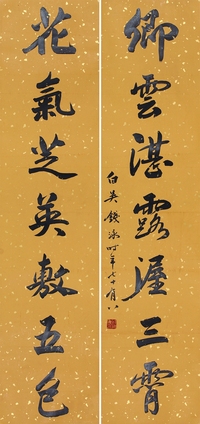 卿雲湛露渥三霄
花氣芝英敷五色
錢泳時年七十有八